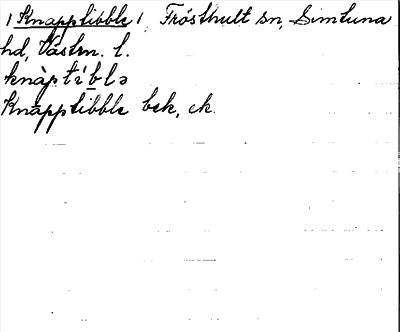 / Knapptibble /, Frösthult sn, Simtuna
hd, Västm. l.
knàptíblə
Knapptibble bek, ek.